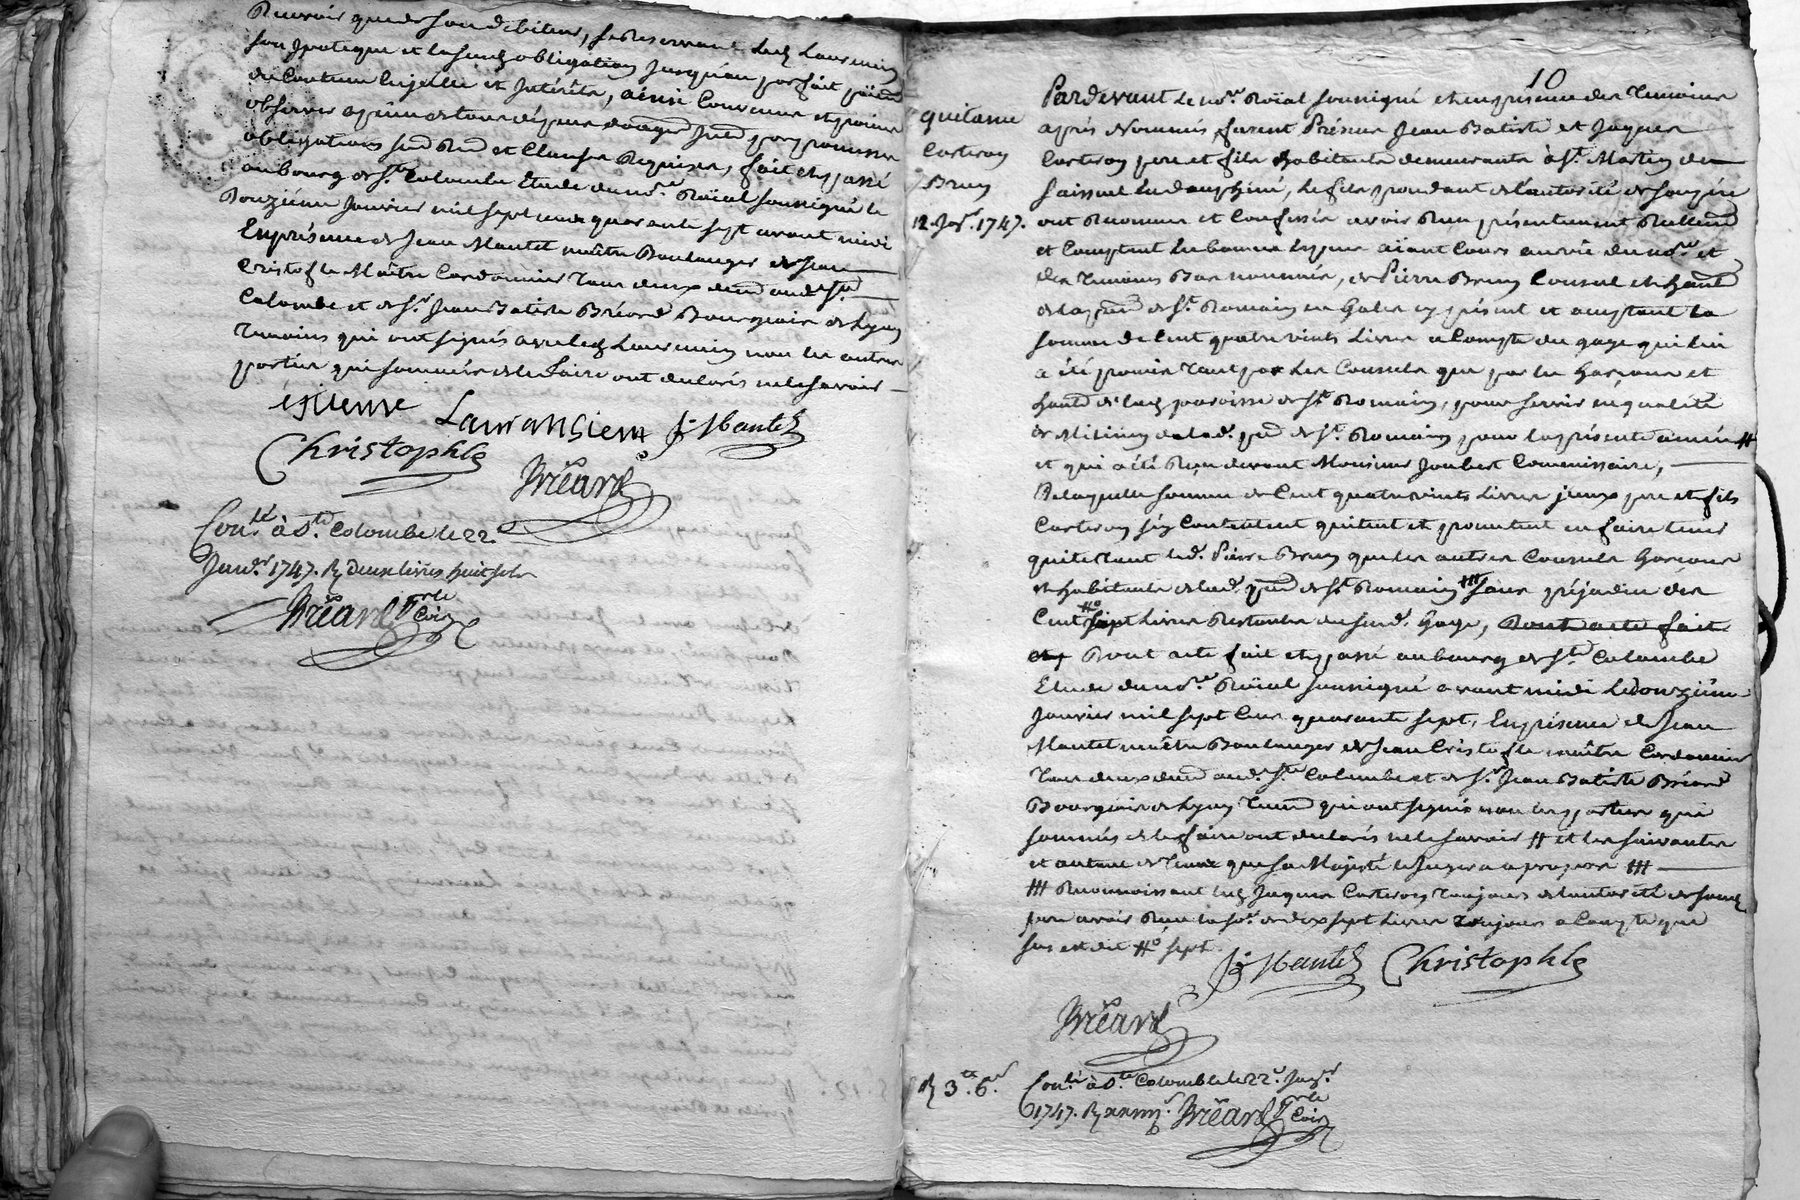 Recevoir que de son debiteur, se Reservant led Laurencin
son ypoteque et lesusd obligation jusqu'au parfait paiemt
du Contenu En jcelle et Intérêts, ainsi Convenu et promis
observer a peine de tous dépens domages
obligations sousd Rend et Clauses Requises, fait et passé
au bourg de Ste Colombe Etude du nore Roïal soussigné le
Douziéme Janvier mil sept cens quarante sept avant midi
En présence de Jean Mantet maître Boulanger de Jean
Cristofle Maître Cordonnier tous deux demt aud Ste
Colombe et de Sr Jean Batiste Bréard Bourgeois de Lyon
temoins qui ont signés avec led Laurencin non les autres
parties qui sommées de le Faire ont declarés ne le scavoir
étienne Lauransiem J. Mantet
Christophle
Bréard
Conllé à Ste Colombe le 22e
Janv. 1747. R deux livres huit sols
Bréard
10
Pardevant le nore Roïal soussigné et en présence des Temoins
après Nommés furent Présens Jean Batiste et Jaques
Corteron pere et fils habitants demeurants à St Martin de
en dauphiné, Le fils procedant de l'autorité de son pére
ont Reconnu et Confessé avoir Reçu présentement Réellemt
et Comptant En bonnes Espéces aiant Cours au vû du nore et
des temoins Bas nommés, de Pierre Brun Consul et habt
de la par de St Romain en Galer cy présent et acceptant la
somme de Cent quatre vints Livres a Compte du gage qui lui
a été promis tant par Les Consuls que par les Garçons et
habts de lad paroisse de St Romain, pour servir en qualité
de Milicien de lad. par de St Romain pour la présente année #
et qui a été Reçu devant Monsieur Joubert Commissaire,
De laquelle somme de Cent quatre vints Livres jceux pere et fils
Corteron s'en Contentent quitent et promettent en faire tenir
quite tant led. Pierre Brun que les autres Consuls Garçons
et habitants de lad. par de St Romain ### sans préjudice des
Cent ##o sept Livres Restantes du susd. Gage, Dont acte fait
et p Dont acte fait et passé au bourg de Ste Colombe
Etude du nore Roïal soussigné avant midi Le douziéme
Janvier mil sept Cens quarante sept, En présence de Jean
Mantet maître Boulanger de Jean Cristofle maître Cordonnier
tous deux demt aud. Ste Colombe et de Sr Jean Batiste Bréard
Bourgeois de Lyon temd qui ont signés non les parties qui
sommés de le faire ont declarés ne le scavoir # et les suivantes
et autant de tems que sa Majesté le Jugera a propos ###
### Reconnoissant led Jaques Corteron toujours de l'autorité de sond
pere avoir Reçu la soe de dix sept Livres toujours a Compte que
sus est dit ##o sept
J. Mantet Christophle
Bréard
Conllé à Ste Colombe le 22e Janr
1747. R Bréard
quitance
Corteron
Brun
12 Janr 1747.
R 3tt. 6s